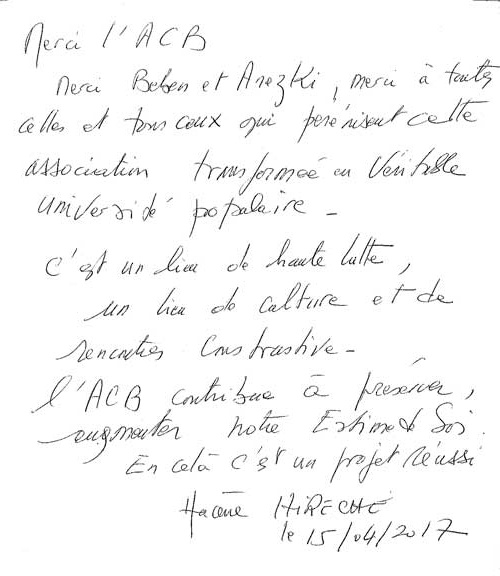 Merci l'ACB
Merci Beben et Arezki, merci à toutes
celles et tous ceux qui perénisent cette
association transformée en Véritable
université populaire -
C'est un lieu de haute lutte,
un lieu de culture et de
rencontres Constructive -
l'ACB contribue à préserver,
augmenter notre Estime de Soi.
En celà c'est un projet réussi
Hacène HIRECHE
le 15/04/2017